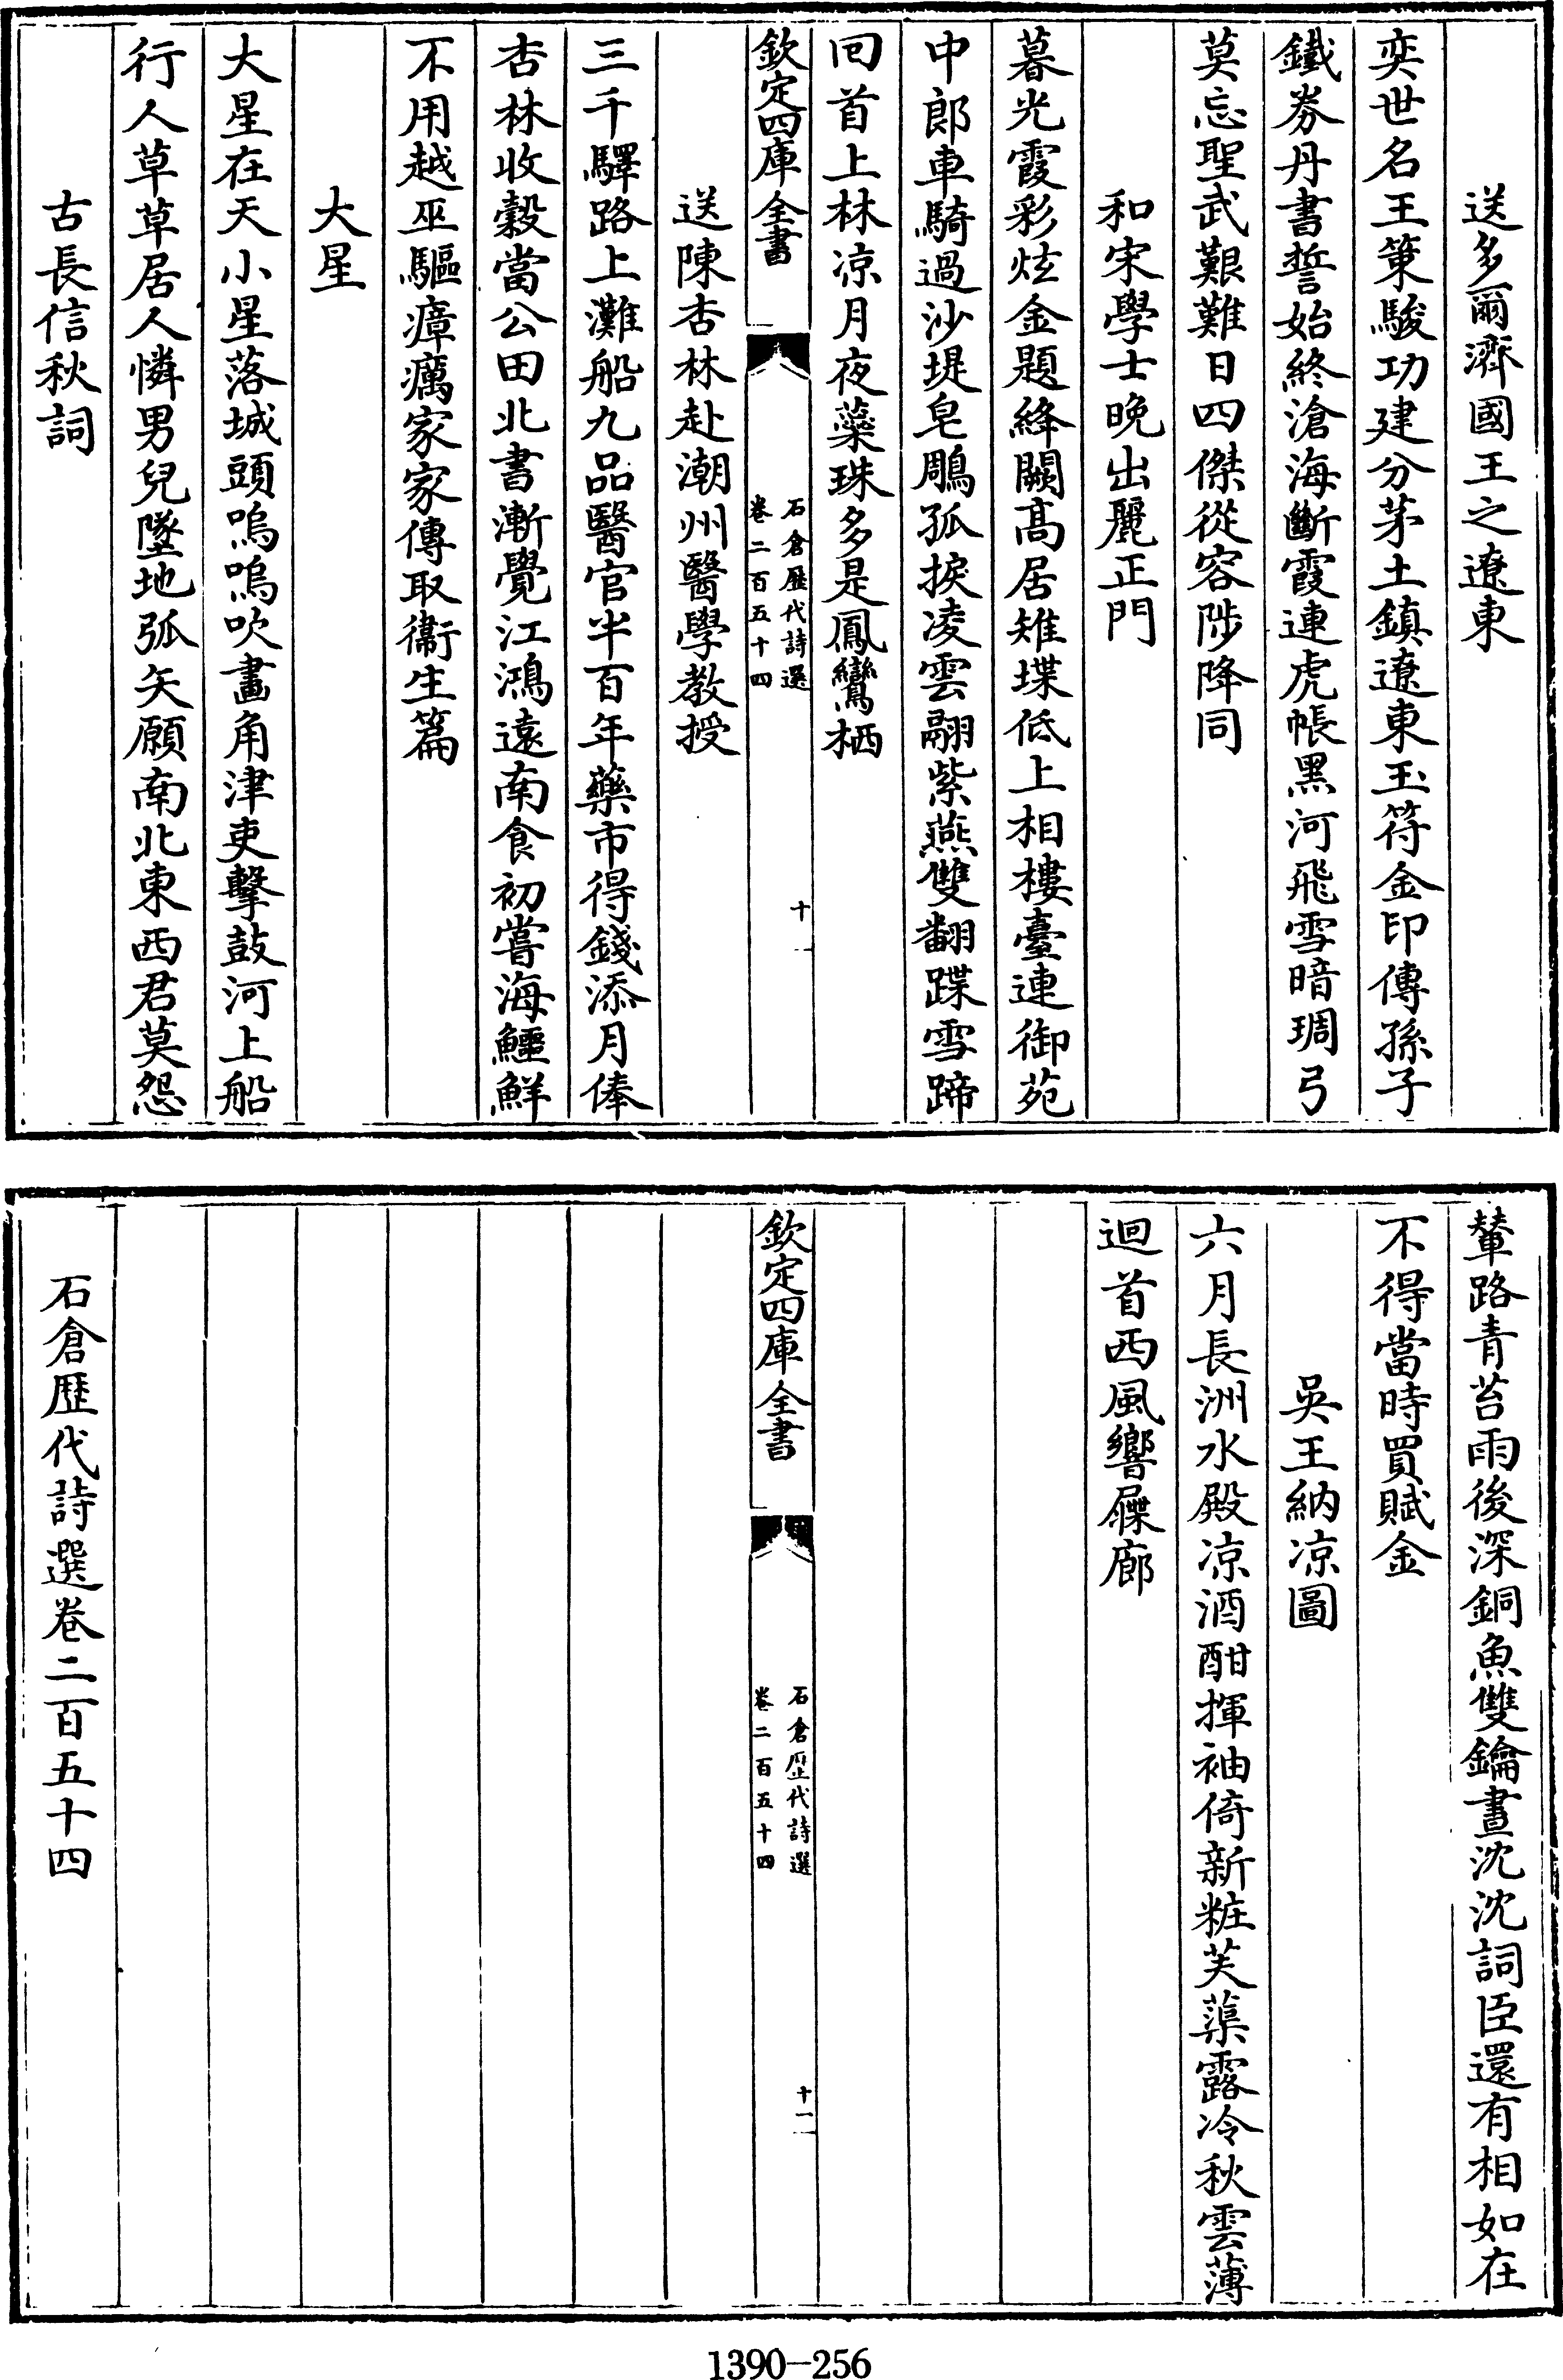 送多爾濟國王之遼東
奕世名王策駿功建分茅土鎮遼東玉符金印傳孫子
鐵券丹書誓始終滄海斷霞連虎帳黑河飛雪暗琱弓
莫忘聖武艱難日四傑從容陟降同
和宋學士晚出麗正門
暮光霞彩炫金題絳闕髙居雉堞低上相樓臺連御苑
中郎車騎過沙堤皂鵰孤捩凌雲翮紫燕雙翻蹀雪蹄
回首上林凉月夜蘂珠多是鳳鸞栖
欽定四庫全書
石倉歷代詩選
卷二百五十四
十一
送陳杏林赴潮州醫學教授
三千驛路上灘船九品醫官半百年藥市得錢添月俸
杏林收穀當公田北書漸覺江鴻遠南食初嘗海鱷鮮
不用越巫驅瘴癘家家傳取衞生篇
大星
大星在天小星落城頭嗚嗚吹畫角津吏擊鼓河上船
行人草草居人憐男兒墜地弧矢願南北東西君莫怨
古長信秋詞
輦路青苔雨後深銅魚雙鑰晝沈沈詞臣還有相如在
不得當時買賦金
吳王納凉圖
六月長洲水殿凉酒酣揮袖倚新粧芙蕖露冷秋雲薄
迴首西風響屧廊
欽定四庫全書
石倉歷代詩選
卷二百五十四
十二
石倉歷代詩選卷二百五十四
1390-256